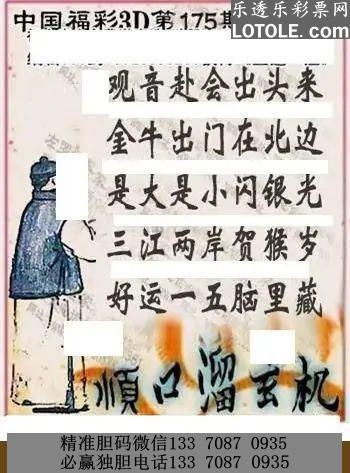 中国福彩3D第175期
乐透乐彩票网
LOTOLE.COM
观音赴会出头来
金牛出门在北边
是大是小闪银光
三江两岸贺猴岁
好运一五脑里藏
顺口溜玄机
精准胆码微信133 7087 0935
必赢独胆电话133 7087 0935